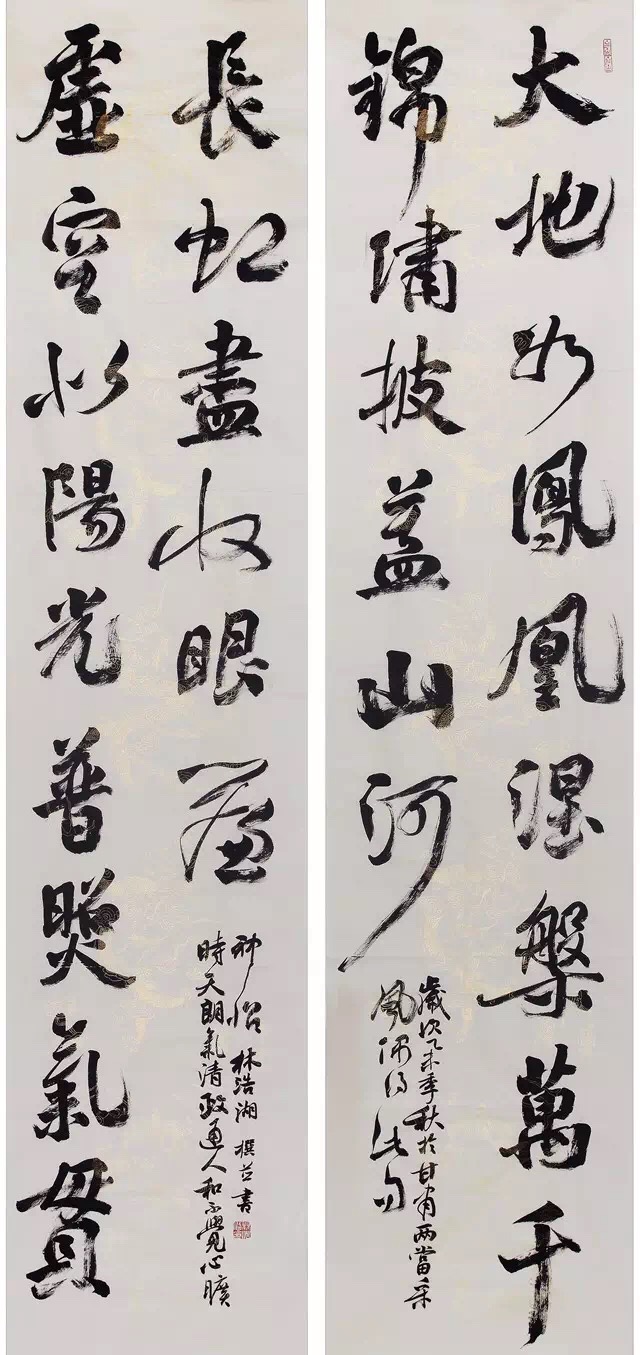 大地如鳳凰涅槃萬千
錦繡披蓋山河
歲次乙未季秋於甘肅兩當采
風偶得此句
虛空似陽光普照氣貫
長虹盡收眼簾
時天朗氣清政通人和不覺心曠
神怡 林浩湖 撰並書